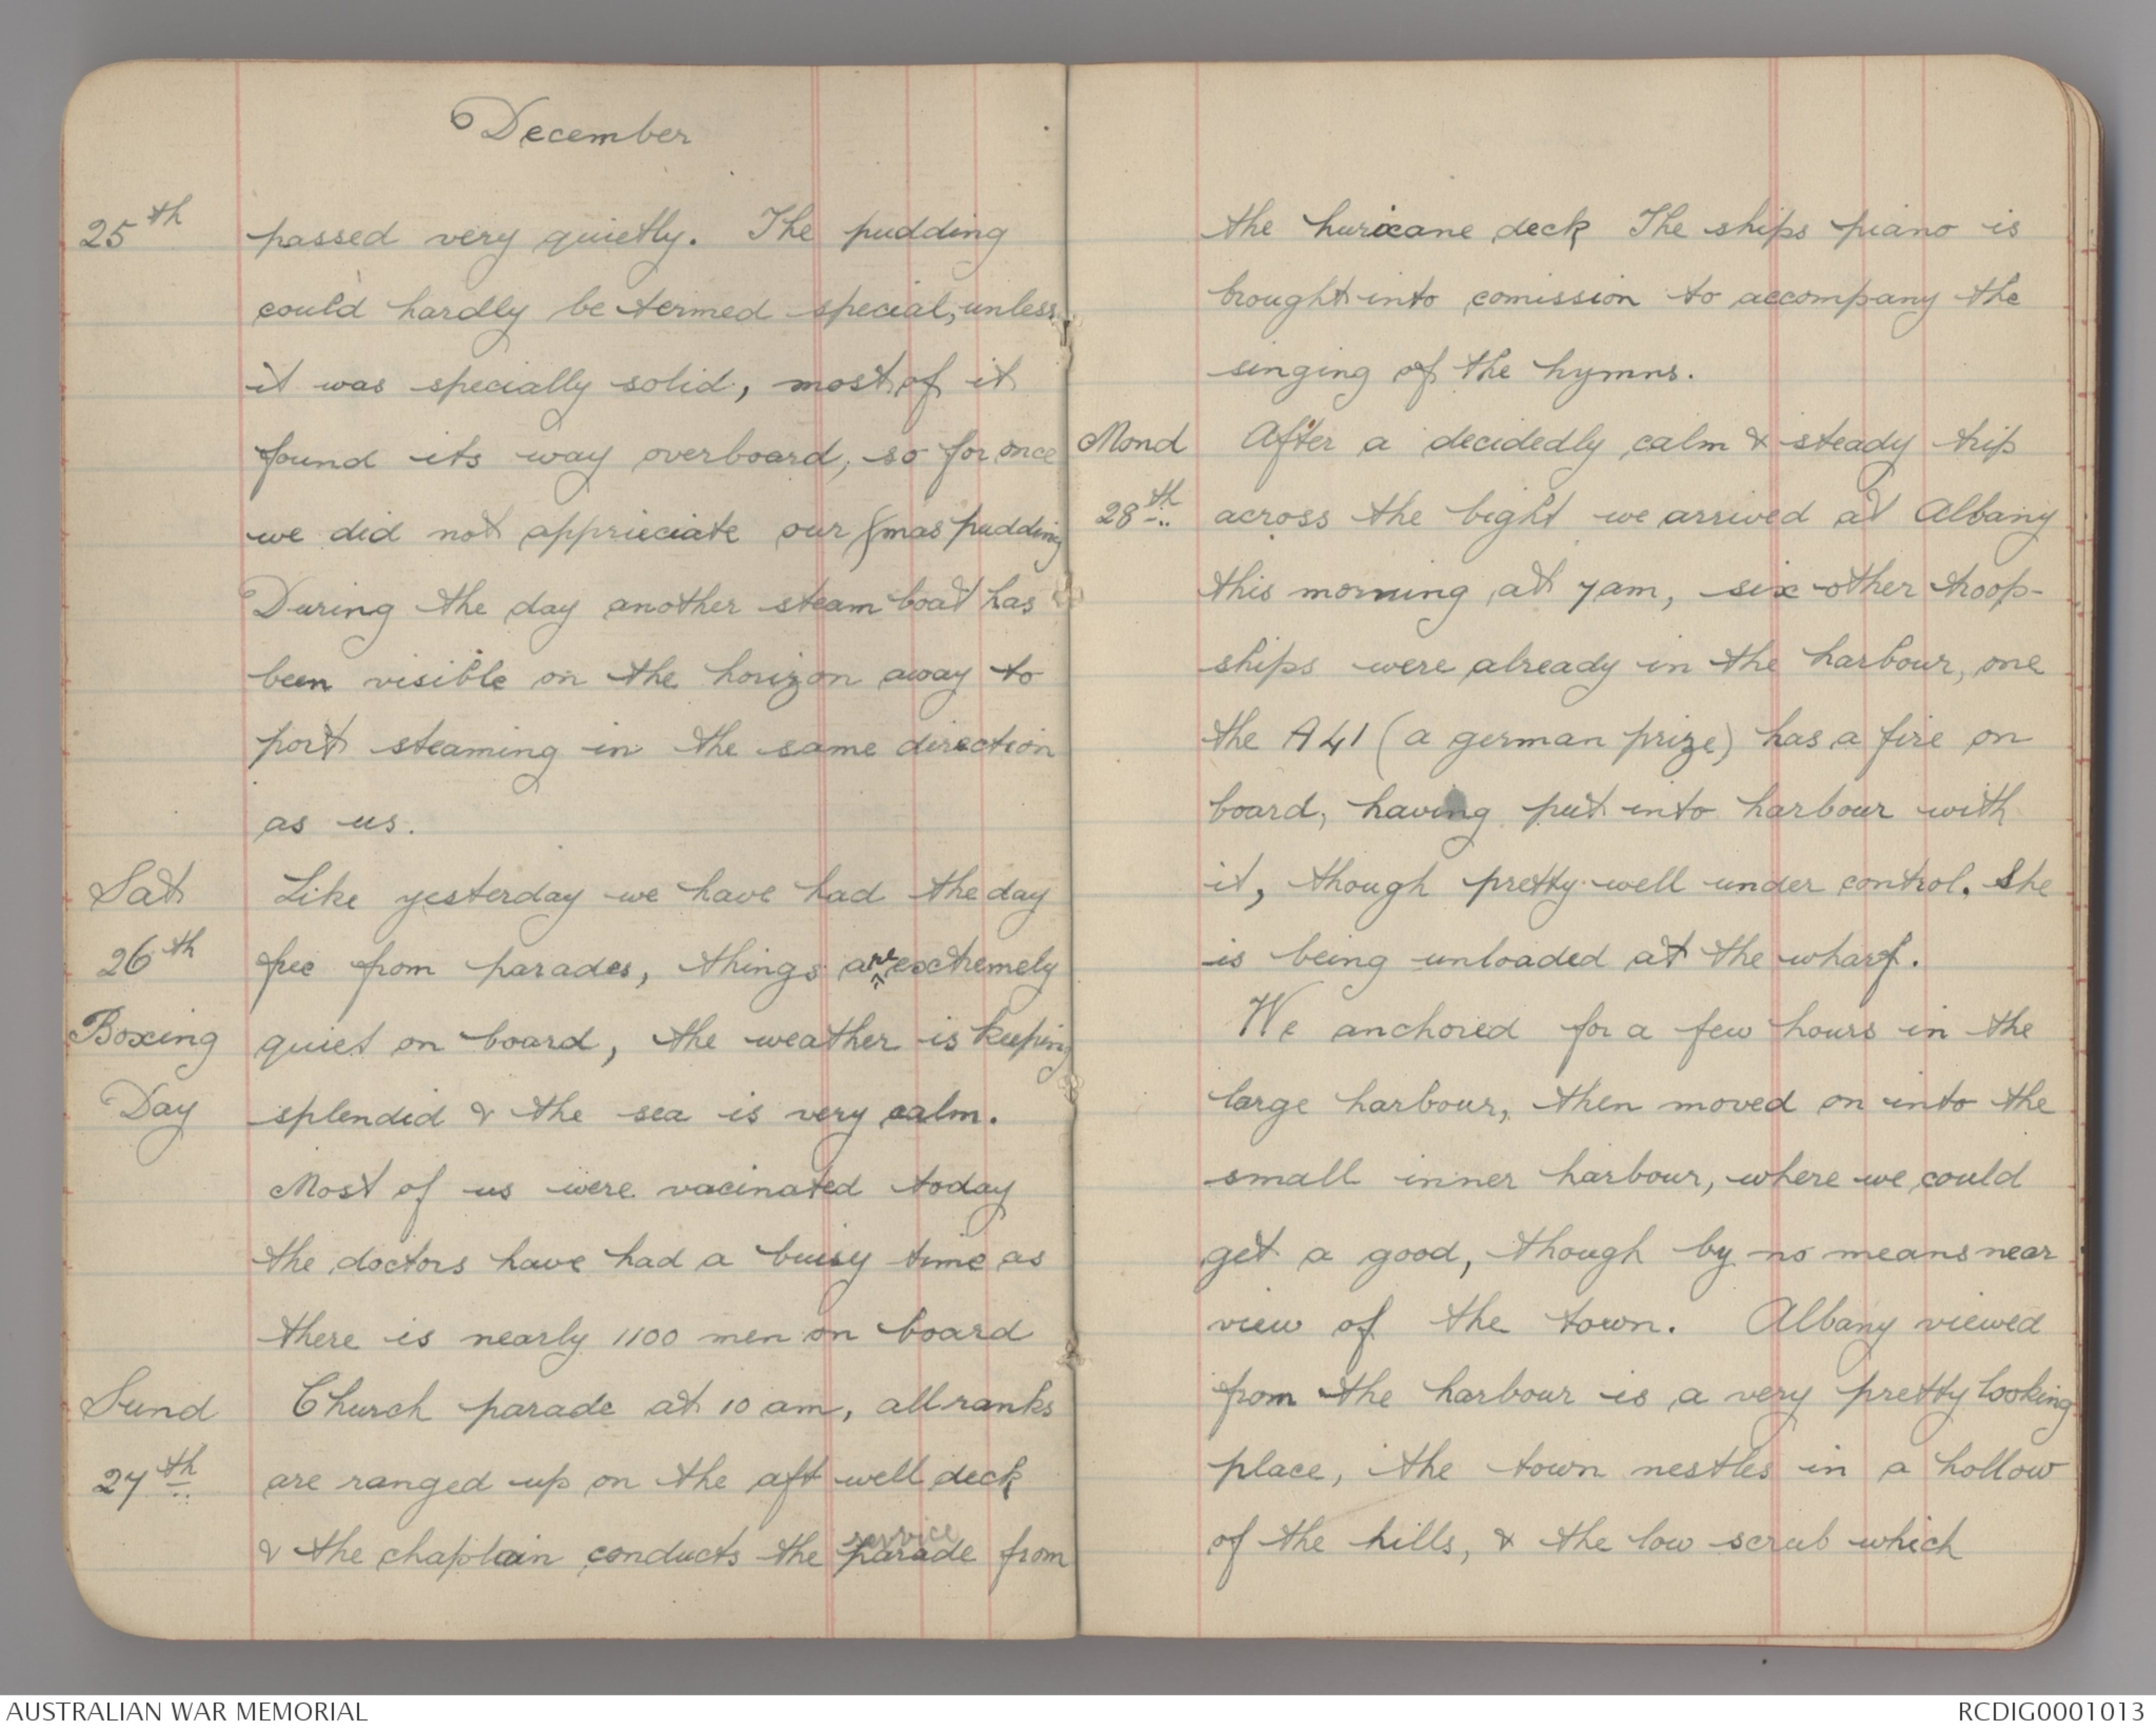 December
25th passed very quietly. The pudding
could hardly be termed special, unless
it was specially solid, most of it
found its way overboard, so for once
we did not apprieciate our Xmas pudding
During the day another steam boat has
been visible on the horizon away to
port steaming in the same direction
as us.
Sat Like yesterday we have had the day
26th free from parades, things are extremely
Boxing quiet on board, the weather is keeping
Day splendid & the sea is very calm.
Most of us were vacinated today
the doctors have had a buisy time as
there is nearly 1100 men on board
Sund Church parade at 10 am, all ranks
27th are ranged up on the aft well deck
service
& the chaplain conducts the parade from
the huricane deck The ships piano is
brought into comission to accompany the
singing of the hymns.
Mond After a decidedly calm & steady trip
28th across the bight we arrived at Albany
this morning at 7am, six other troop-
ships were already in the harbour, one
the A41 (a german prize) has a fire on
board, having put into harbour with
it, though pretty well under control. She
is being unloaded at the wharf.
We anchored for a few hours in the
large harbour, then moved on into the
small inner harbour, where we could
get a good, though by no means near
view of the town. Albany viewed
from the harbour is a very pretty looking
place, the town nestles in a hollow
of the hills, & the low scrub which
AUSTRALIAN WAR MEMORIAL
RCDIG0001013